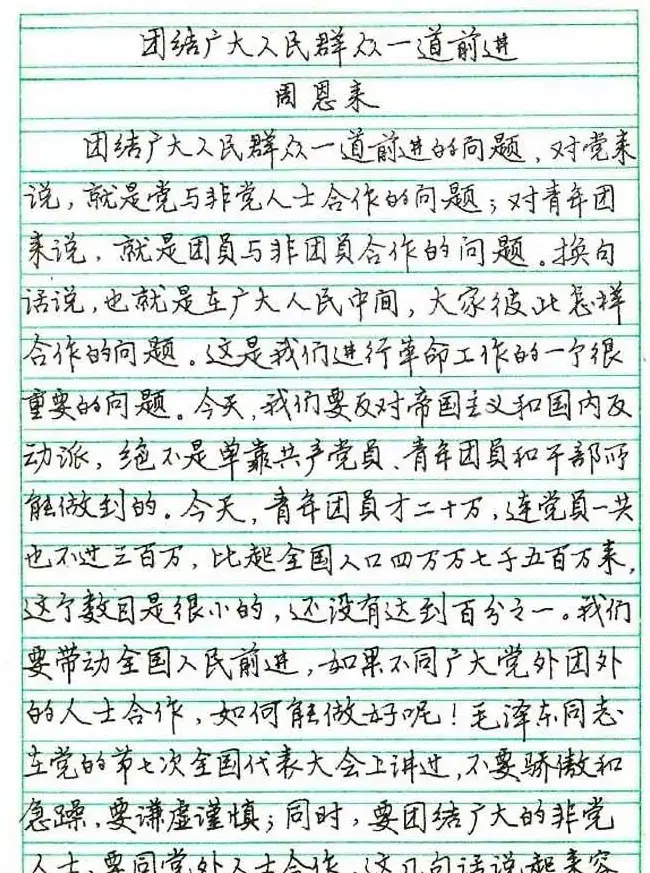 团结广大人民群众一道前进
周恩来
团结广大人民群众一道前进的问题，对党来
说，就是党与非党人士合作的问题；对青年团
来说，就是团员与非团员合作的问题。换句
话说，也就是在广大人民中间，大家彼此怎样
合作的问题。这是我们进行革命工作的一个很
重要的问题。今天，我们要反对帝国主义和国内反
动派，绝不是单靠共产党员、青年团员和干部所
能做到的。今天，青年团员才二十万，连党员一共
也不过三百万，比起全国人口四万万七千五百万来，
这个数目是很小的，还没有达到百分之一。我们
要带动全国人民前进，如果不同广大党外团外
的人士合作，如何能做好呢！毛泽东同志
在党的第七次全国代表大会上讲过，不要骄傲和
急躁，要谦虚谨慎；同时，要团结广大的非党
人士，要同党外人士合作。这几句话说起来容